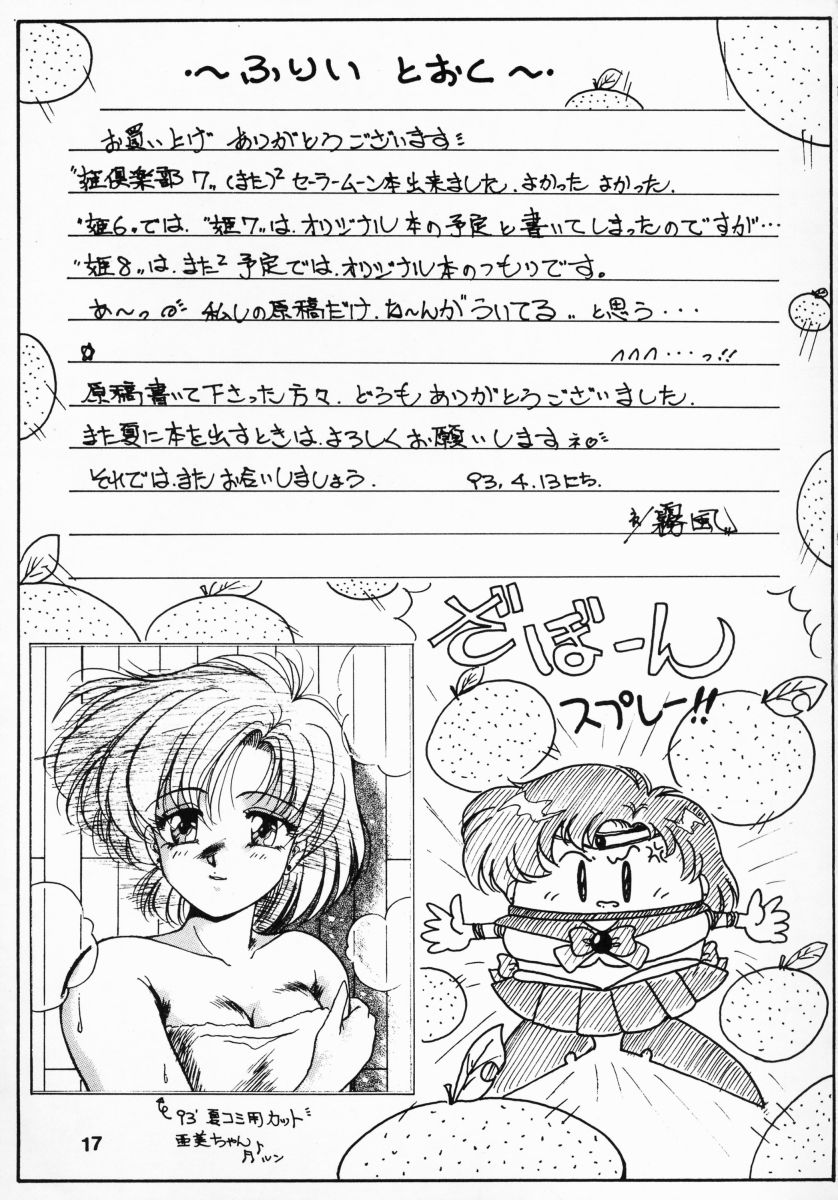 ・～ふりい とおく～・
お買い上げ ありがとうございます
"姫倶楽部7"(また)² セーラームーン本出来ました.よかった よかった.
"姫6"では."姫7"は.オリジナル本の予定と書いてしまったのですが…
"姫8"は.また² 予定では.オリジナル本のつもりです。
あ～っ 私しの原稿だけ.ね～んがういてる" と思う・・・
へへへ・・・っ!!
原稿書いて下さった方々.どうもありがとうございました.
また夏に本を出すときは.よろしくお願いしますネ
それでは.また お会いしましょう. 93.4.13にち.
霧風
ざぼーん
スプレー!!
93' 夏コミ用カット
亜美ちゃん
ルン
17